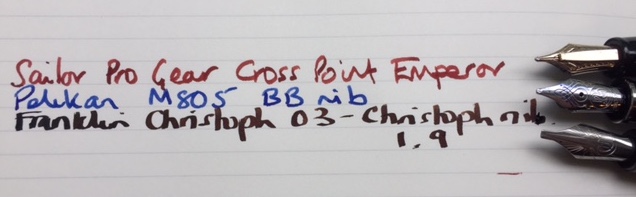 Sailor Pro Gear Cross Point Emperor
Pelikan M805 BB nib
Franklin Christoph 03 - Christoph nib.
1.9